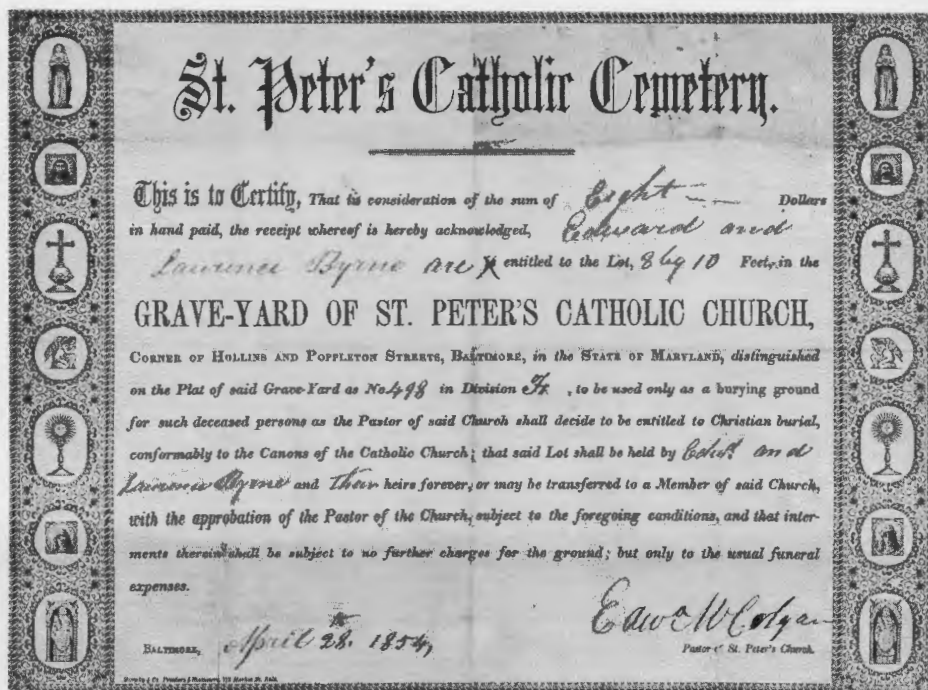 St. Peter's Catholic Cemetery.
This is to Certify, That in consideration of the sum of Eight — Dollars
in hand paid, the receipt whereof is hereby acknowledged, Edward and
Lawrence Byrne are entitled to the Lot, 8 by 10 Feet, in the
GRAVE-YARD OF ST. PETER'S CATHOLIC CHURCH,
CORNER OF HOLLINS AND POPPLETON STREETS, BALTIMORE, IN THE STATE OF MARYLAND, distinguished
on the Plat of said Grave-Yard as No 498 in Division , to be used only as a burying ground
for such deceased persons as the Pastor of said Church shall decide to be entitled to Christian burial,
conformably to the Canons of the Catholic Church; that said Lot shall be held by Edwd. and
Lawrence Byrne and Their heirs forever, or may be transferred to a Member of said Church,
with the approbation of the Pastor of the Church, subject to the foregoing conditions, and that inter-
ments therein shall be subject to no further charges for the ground; but only to the usual funeral
expenses.
Edwd McColgan
BALTIMORE, April 28. 1854,
Pastor of St. Peter's Church.